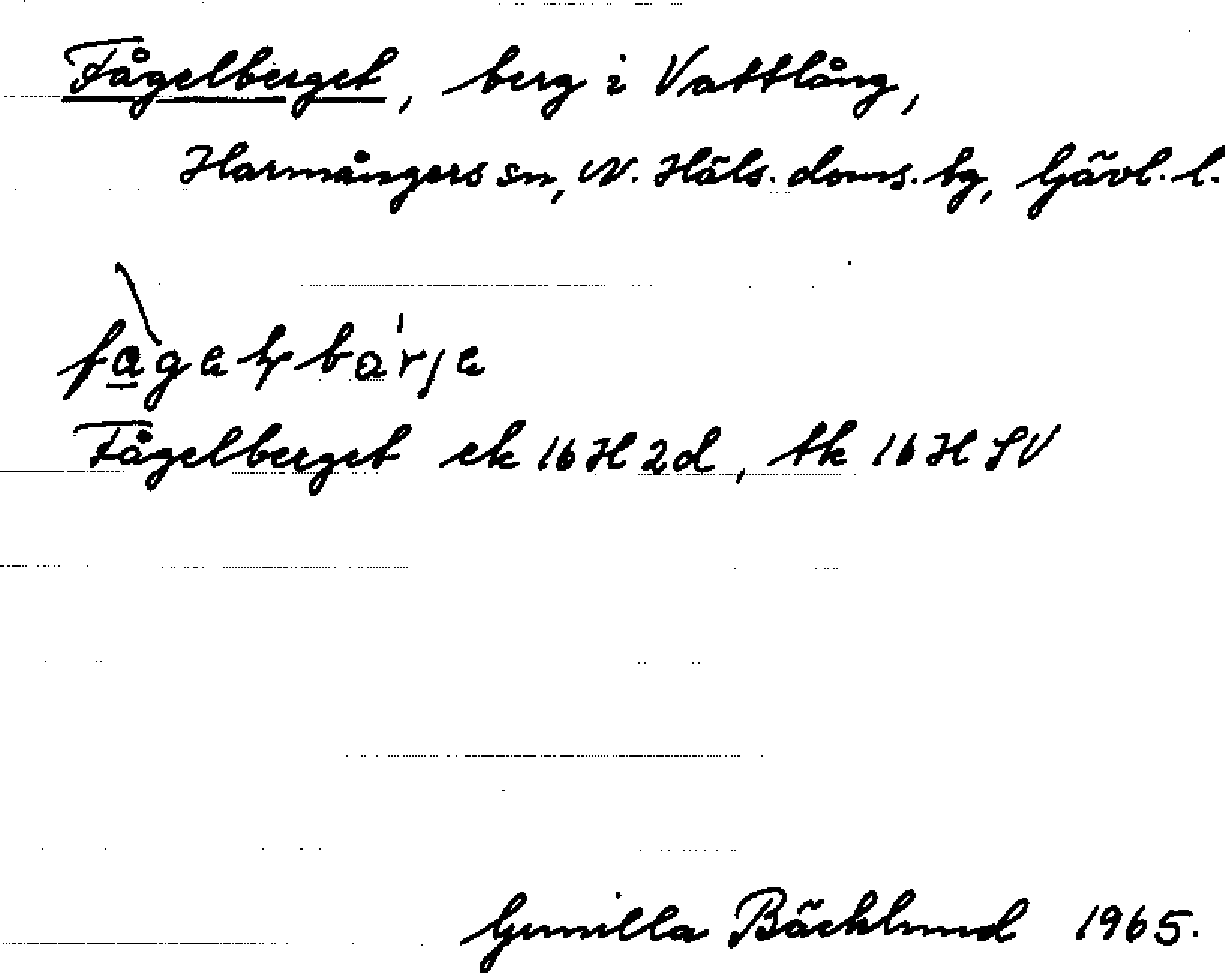 Fågelberget, berg i Vattlång,
Harmångers sn, N. Häls. doms. hg, Gävl. l.
Fågelberget ek 16H2d, tk 16H SV
Gunilla Bäcklund 1965.